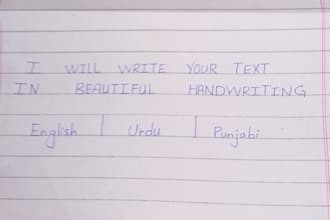 I WILL WRITE YOUR TEXT
IN BEAUTIFUL HANDWRITING
English | Urdu | Punjabi